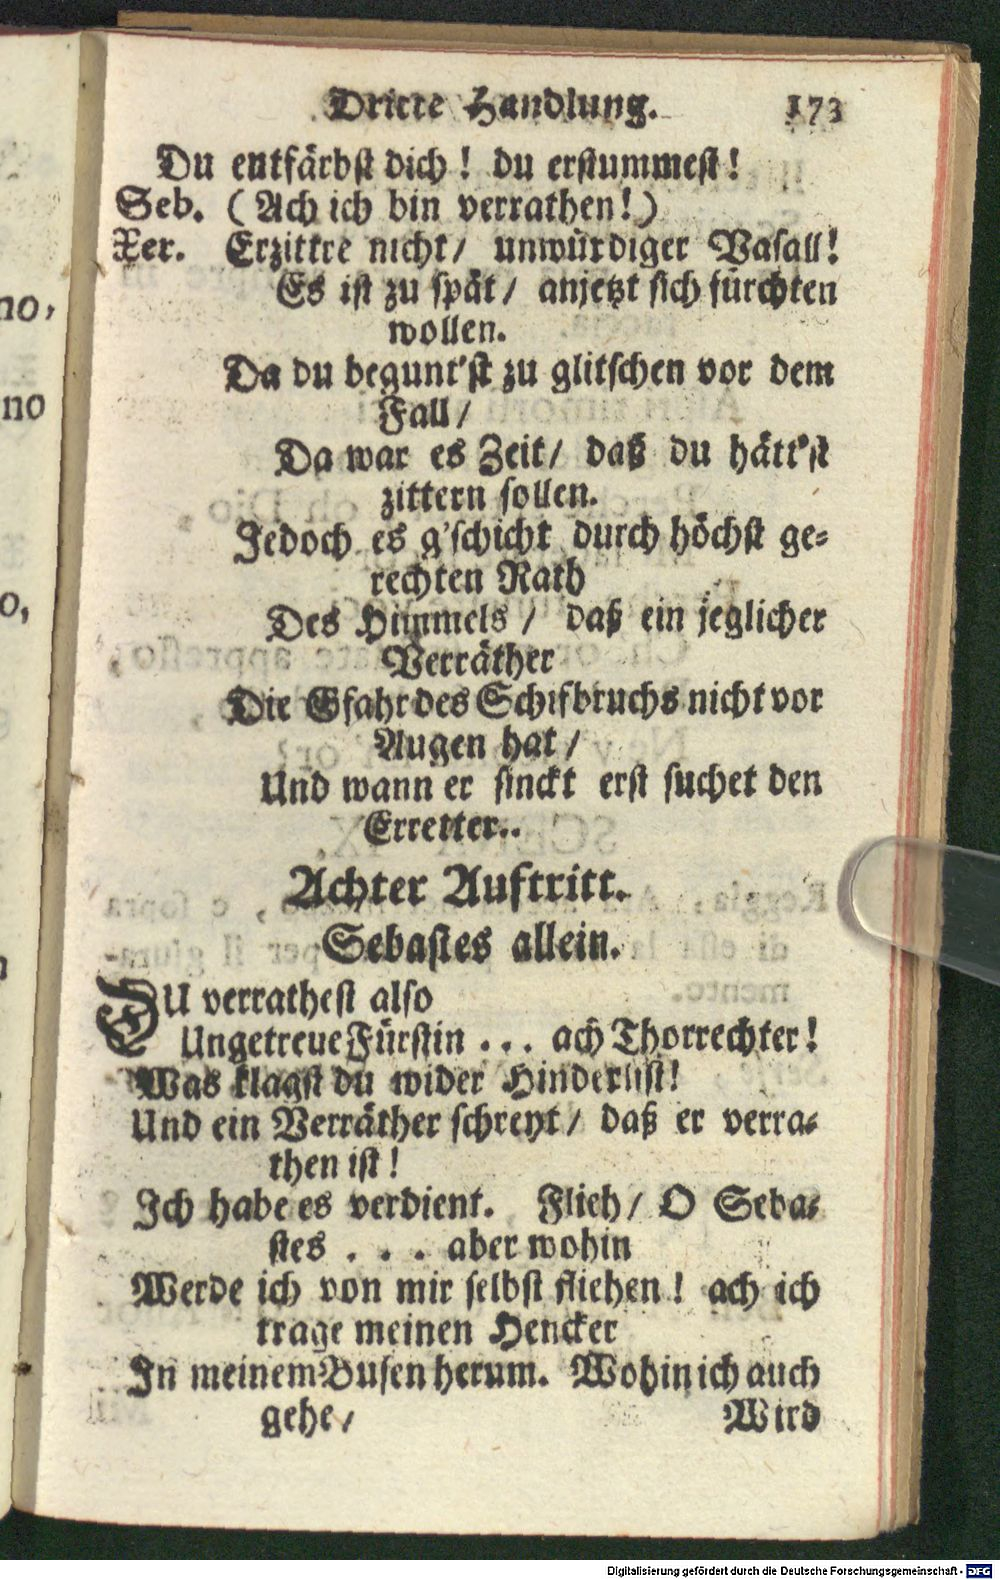 Dritte Handlung. 173
Du entfärbst dich! du erstummest!
Seb. (Ach ich bin verrathen!)
Xer. Erzittre nicht/ unwürdiger Vasall!
Es ist zu spät/ anjetzt sich fürchten
wollen.
Da du begunt'st zu glitschen vor dem
Fall/
Da war es Zeit/ daß du hätt'st
zittern sollen.
Jedoch es g'schicht durch höchst ge-
rechten Rath
Des Himmels/ daß ein jeglicher
Verräther
Die Gfahr des Schifbruchs nicht vor
Augen hat/
Und wann er sinckt erst suchet den
Erretter..
Achter Auftritt.
Sebastes allein.
DU verrathest also
Ungetreue Fürstin ... ach Thorrechter!
Was klagst du wider Hinderlist!
Und ein Verräther schreyt/ daß er verra-
then ist!
Ich habe es verdient. Flieh/ O Seba-
stes ... aber wohin
Werde ich von mir selbst fliehen! ach ich
trage meinen Hencker
In meinem Busen herum. Wohin ich auch
gehe/ Wird
no,
no
o,
Digitalisierung gefördert durch die Deutsche Forschungsgemeinschaft - DFG